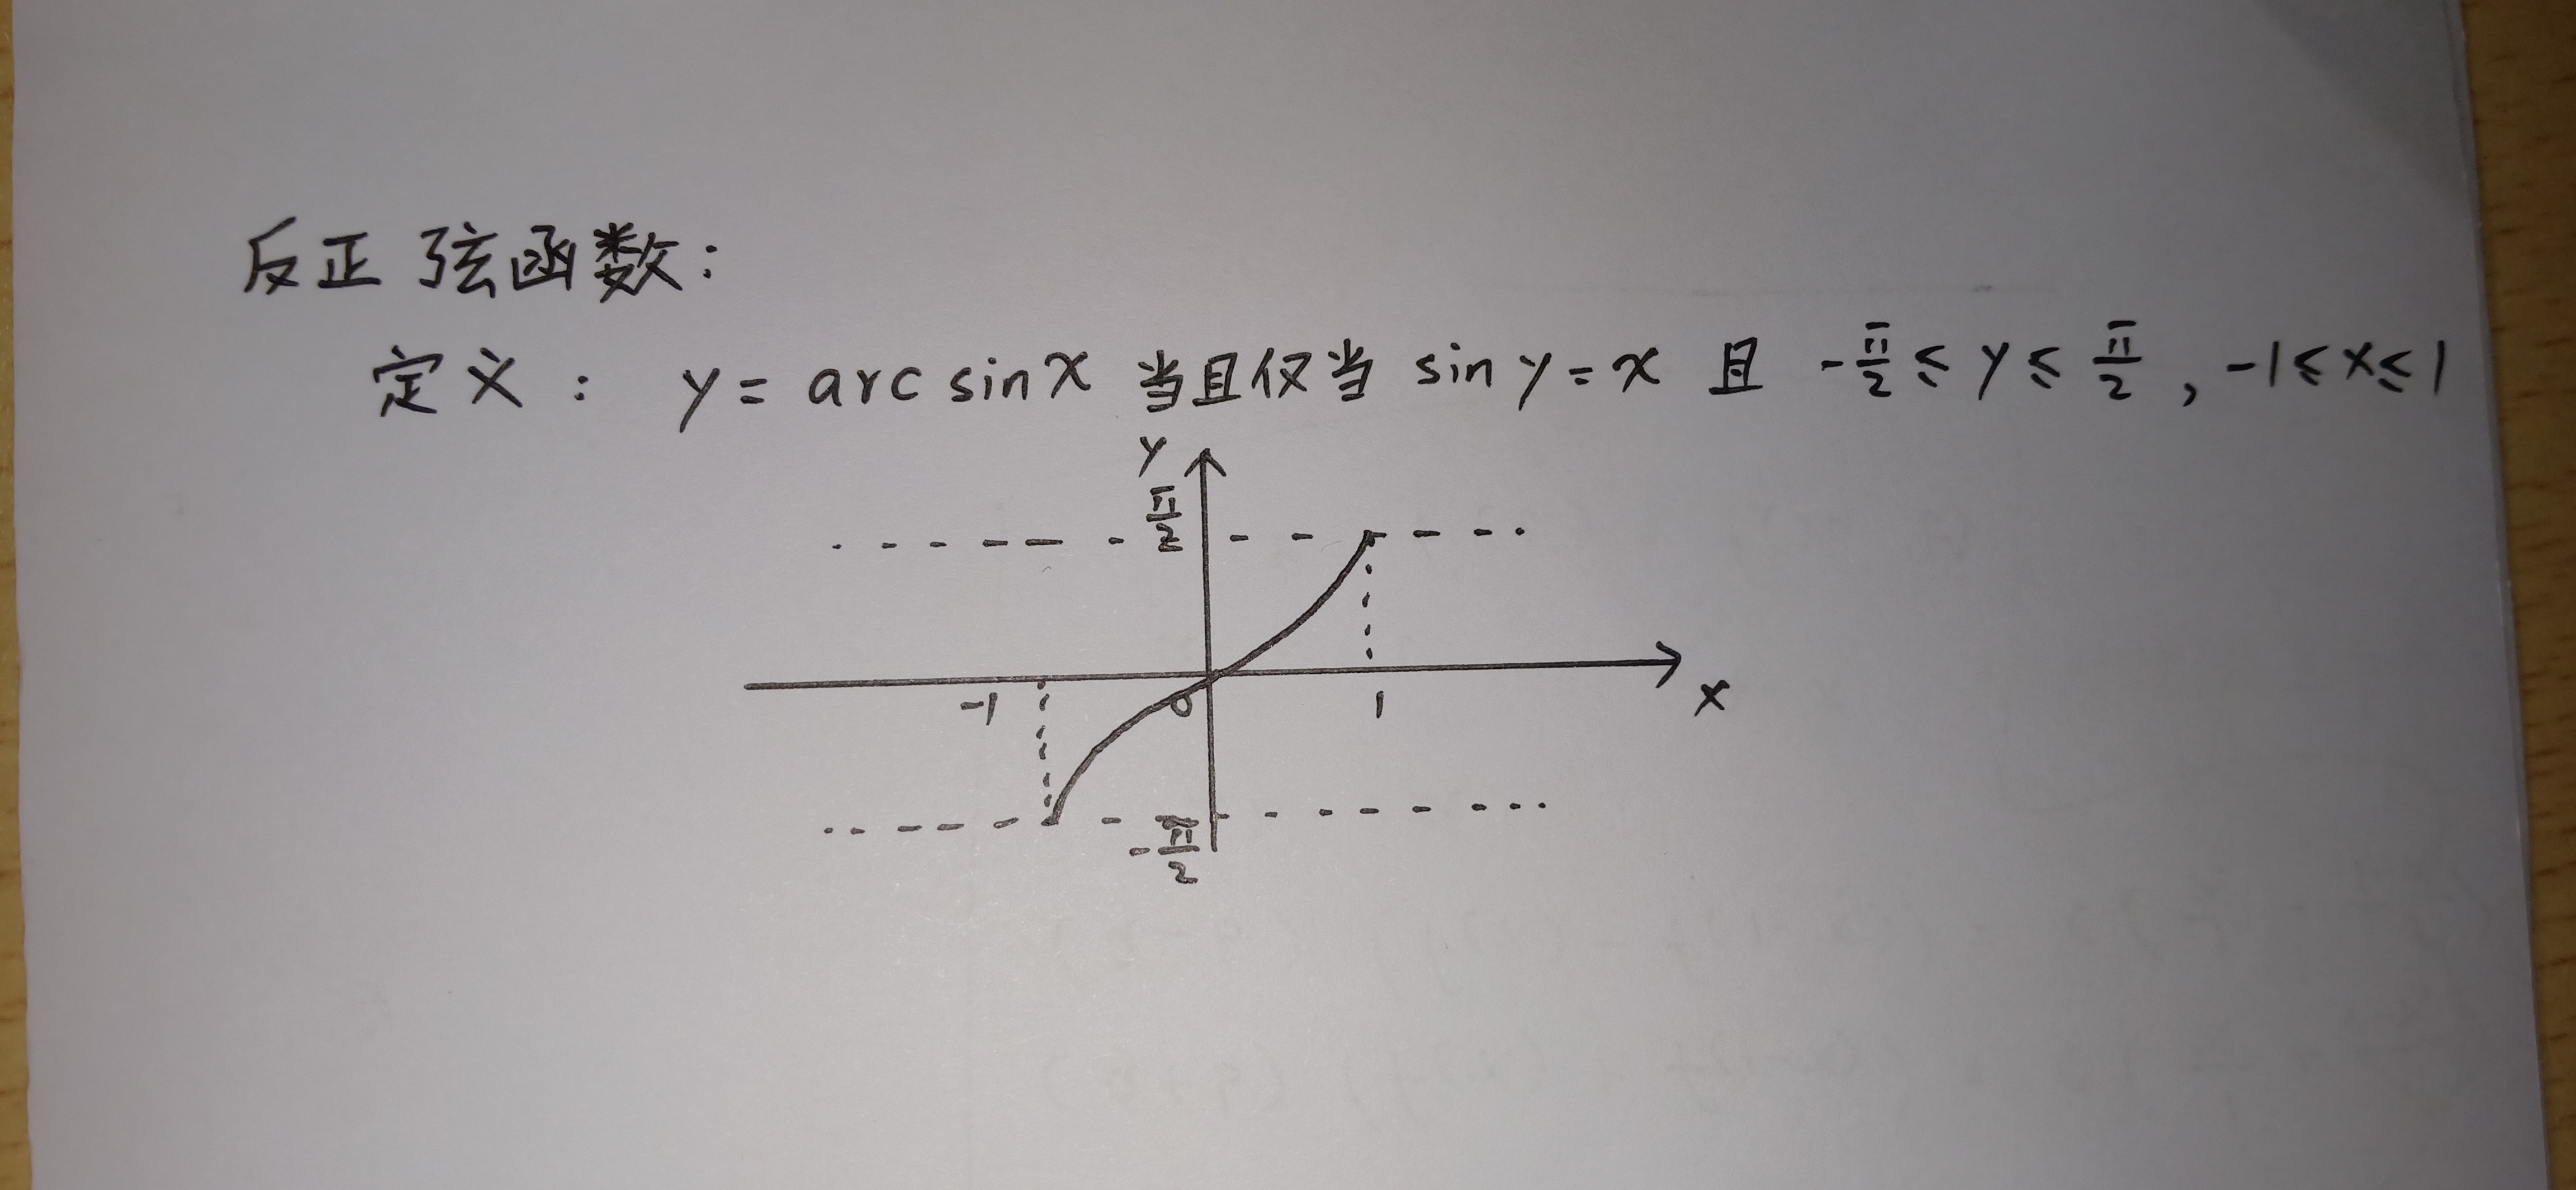 反正弦函数:
定义: y = arc sin x 当且仅当 sin y = x 且 -π/2 ≤ y ≤ π/2, -1 ≤ x ≤ 1
y
π/2
-1 0 1 x
-π/2